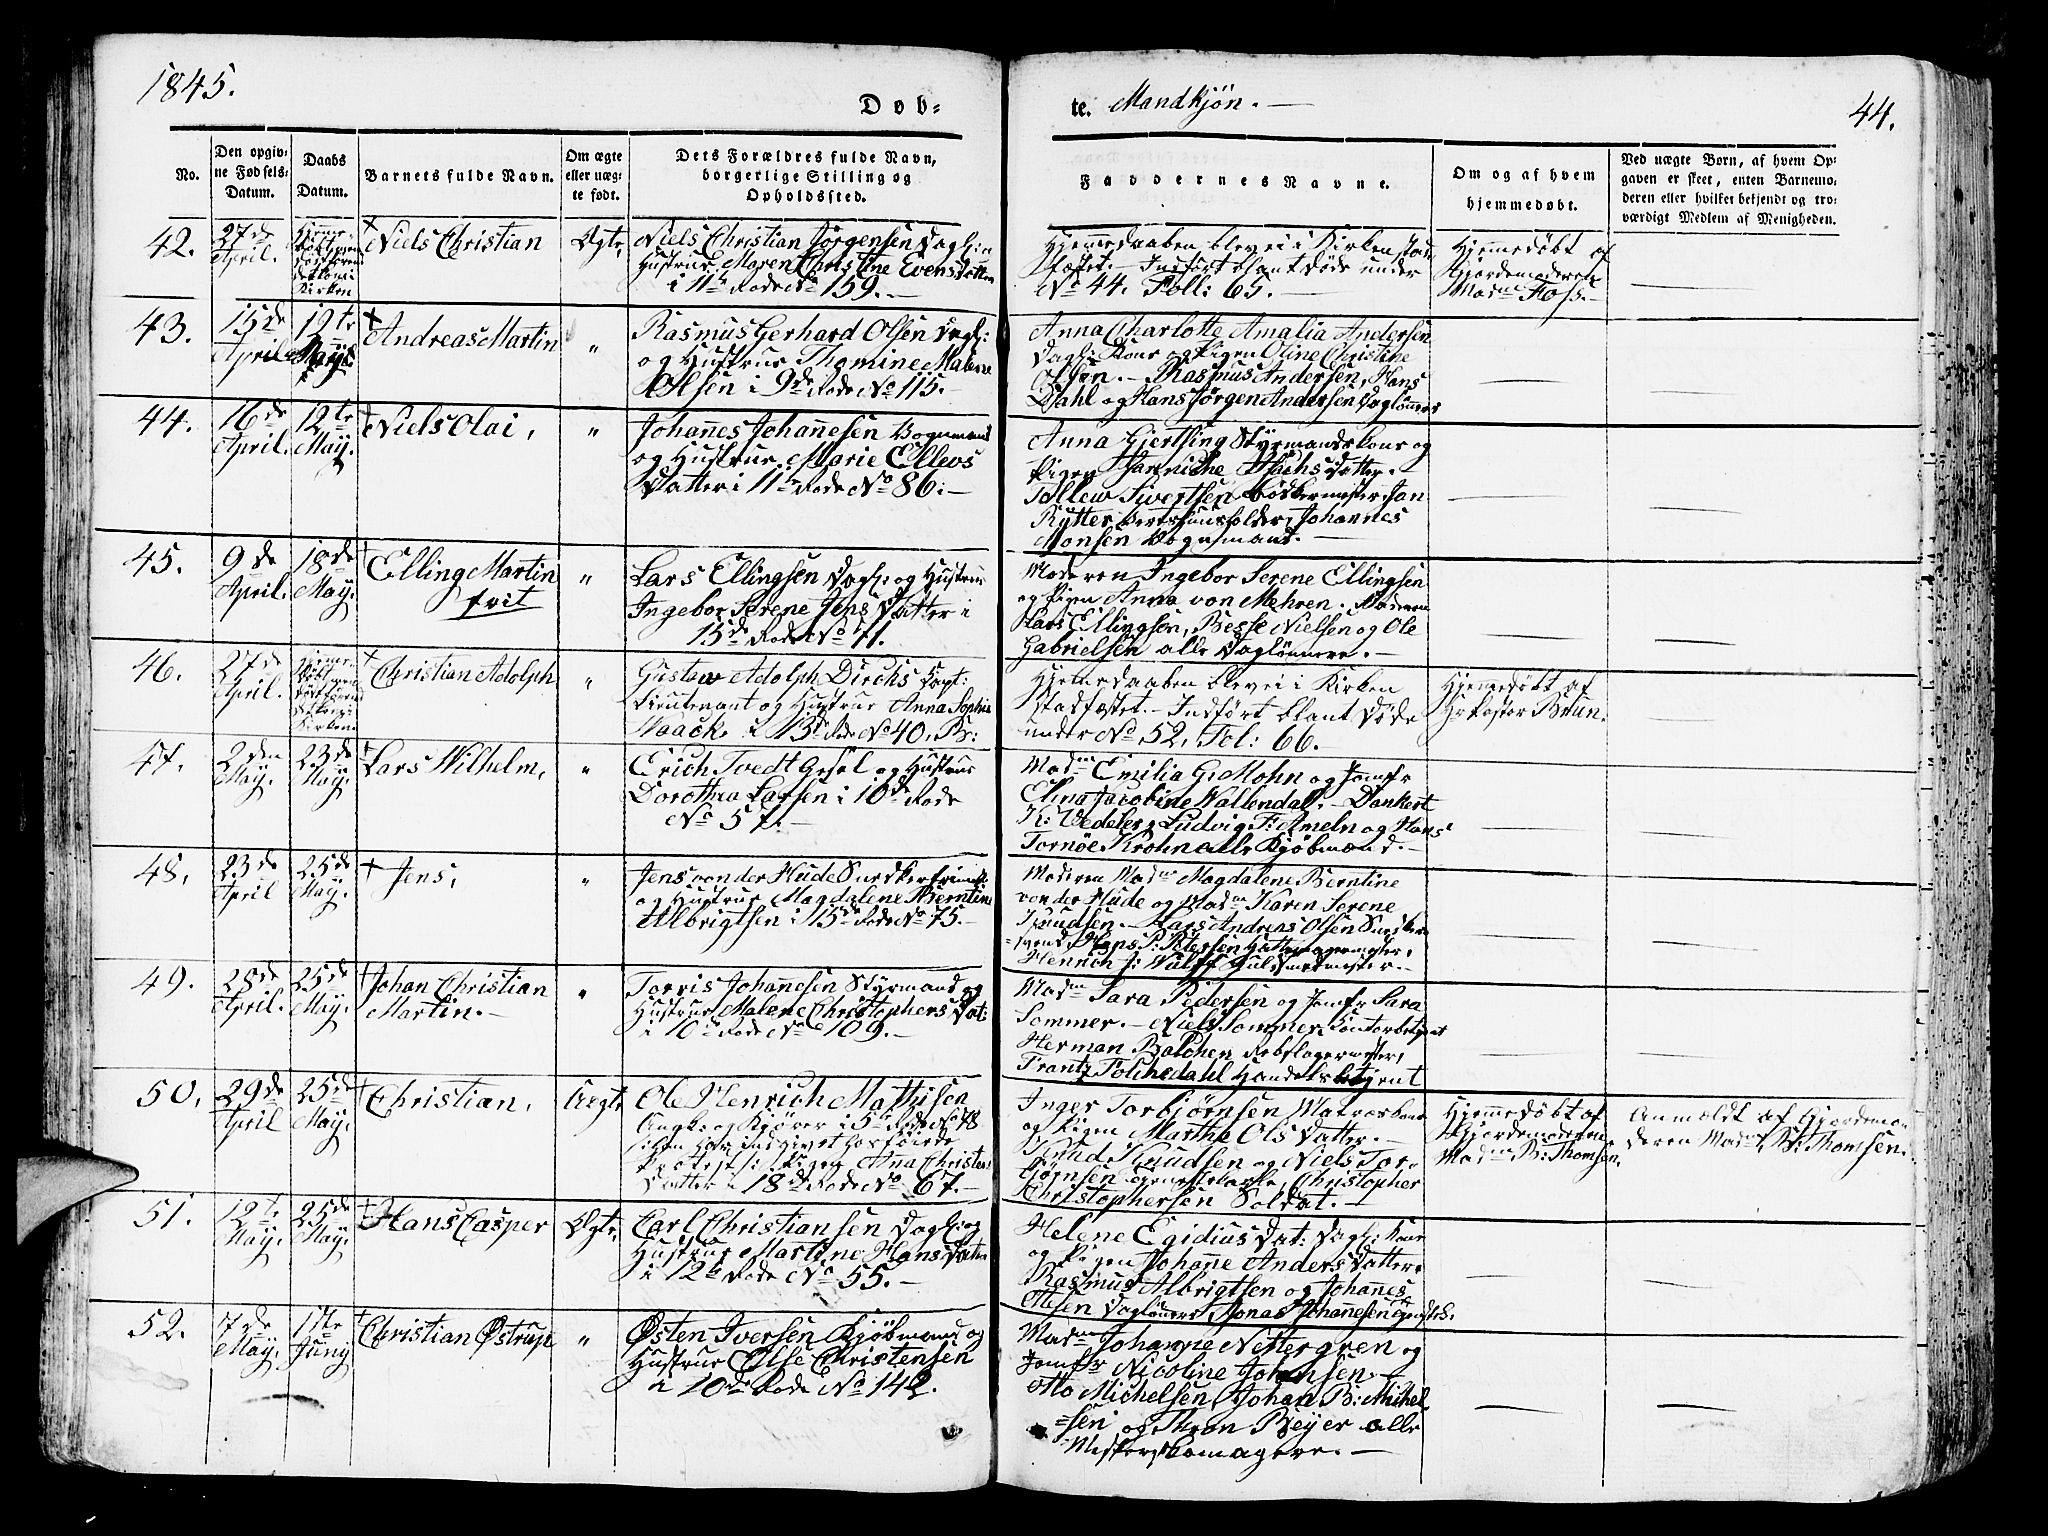 1845.
Døb-
te. Mandkjön. —
44.
No.
Den opgiv-
ne Fødsels-
Datum.
Daabs
Datum.
Barnets fulde Navn.
Om ægte
eller uæg-
te født.
Dets Forældres fulde Navn,
borgerlige Stilling og
Opholdssted.
Faddernes Navne.
Om og af hvem
hjemmedøbt.
Ved uægte Børn, af hvem Op-
gaven er skeet, enten Barnemo-
deren eller hvilket bekjendt og tro-
værdigt Medlem af Menigheden.
42.
27de
April.
Kirken
Niels Christian
Ægte,
Niels Christian Jörgensen Dagl: og
Hustrue Maren Christine Evensdatter
i 11te Rode No 159. —
Hjemmedaaben blev ei i Kirken stad-
fæstet. — Indfört blant døde under
No 44. Foll: 65. —
Hjemmedöbt af
Gjordemoderen
Madme Foss. —
43.
15de
April.
12te
May.
Andreas Martin
"
Rasmus Gerhard Olsen Dagl:
og Hustrue Thomine Malene
Olsen i 9de Rode No 115.
Anna Charlotte Amalia Andersen
Dagl: Kone og Pigen Oline Christine
Olsen. — Rasmus Andersen, Hans
Dahl og Hans Jørgen Andersen Daglönnere
44.
16de
April.
12te
May.
Niels Olai,
"
Johannes Johannesen Vognmand
og Hustrue Marie Ellevs
Datter i 11te Rode No 86. —
Anna Giertsing Styrmands Kone og
Pigen Hanniche Hachs Datter.
Tollew Sivertsen bödkermester, Jan
Rytter Vertshuusholder, Johannes
Monsen Vognmand. —
45.
9de
April.
18de
May.
Elling Martin
frit
"
Lars Ellingsen Dagl: og Hustrue
Ingebor Serene Jens Datter i
15de Rode No 71.
Moderen Ingebor Serene Ellingsen
og Pigen Anna von Mehren. Faderen
Lars Ellingsen, Besse Nielsen og Ole
Gabrielsen alle Daglönnere. —
46.
27de
April.
Kirken
Christian Adolph
"
Gustav Adolph Dirchs Capt:
Lieutenant og Hustrue Anna Sophie
Haack i 13de Rode No 40. B:
Hjemedaaben blev ei i Kirken
stadfæstet. — Indfört blant Døde
under No 52, Fol: 66. —
Hjemmedöbt af
Hr Pastor Brun.
47.
2den
May.
23de
May.
Lars Wilhelm,
"
Erich Tvedt Gesel og Hustrue
Dorothea Larsen i 10de Rode
No 57. —
Madme Emilia G. Mohn og Jomfr
Elina Jacobine Wallendal. — Dankert
K: Wedeler, Ludvig F: Ameln og Hans
Tornöe Krohn alle Kjöbmænd. —
48.
23de
April
25de
May.
Jens,
"
Jens von der Hude Snedkersvend
og Hustrue Magdalene Berntine
Albrigtsen i 15de Rode No 75. —
Moderen Madme Magdalene Berntine
von der Hude og Madme Karen Serene
Knudsen. — Lars Andreas Olsen Snedker-
svend, Hans P: Petersen Hattemagermester,
Henrich J: Wulff Guldsmedmester. —
49.
28de
April.
25de
May.
Johan Christian
Martin. —
"
Torris Johannesen Styrmand og
Hustrue Malene Christophers Dat:
i 10de Rode No 109. —
Madme Sara Pedersen og Jomfr Sara
Sommer. — Niels Sommer, Kontorbetjent
Herman Balchen Rebslagermester,
Frantz Folchedahl Handelsbetjent
50.
29de
April
25de
May.
Christian,
Uægte
Ole Henrich Mathisen
Ungk: og Kjörer i 5te Rode No 78
som har indgivet
Pigen Anna Christens
Datter i 18de Rode No 67. —
Inger Torbjörnsen Matroskone
og Pigen Marthe Ols Datter. —
Knud Knudsen og Niels Tor-
björnsen Christopher
Christophersen Soldat. —
Hjemmedöbt af
Gjordemoderen
Madme B: Thomsen.
Anmeldt af Gjordemo-
deren Madme B: Thomsen.
51.
12te
May.
25de
May.
Hans Casper
Ægte,
Carl Christiansen Dagl: og
Hustrue Martine Hans Datter
i 12te Rode No 55. —
Helene Egidius Dat: Dagl: Kone
og Pigen Johanne Anders Datter.
Rasmus Albrigtsen og Johanes
Olsen Daglönnere, Jonas Johannesen
52.
7de
May.
1te
Juny
Christian Østrup
"
Østen Iversen Kjöbmand og
Hustrue Else Christensen
i 10de Rode No 142.
Madme Johanne Nettergren og
Jomfr Nicoline Johansen. —
Otto Michelsen, Johan B: Michel-
sen og Thron Beyer alle
Mesterskomagere. —